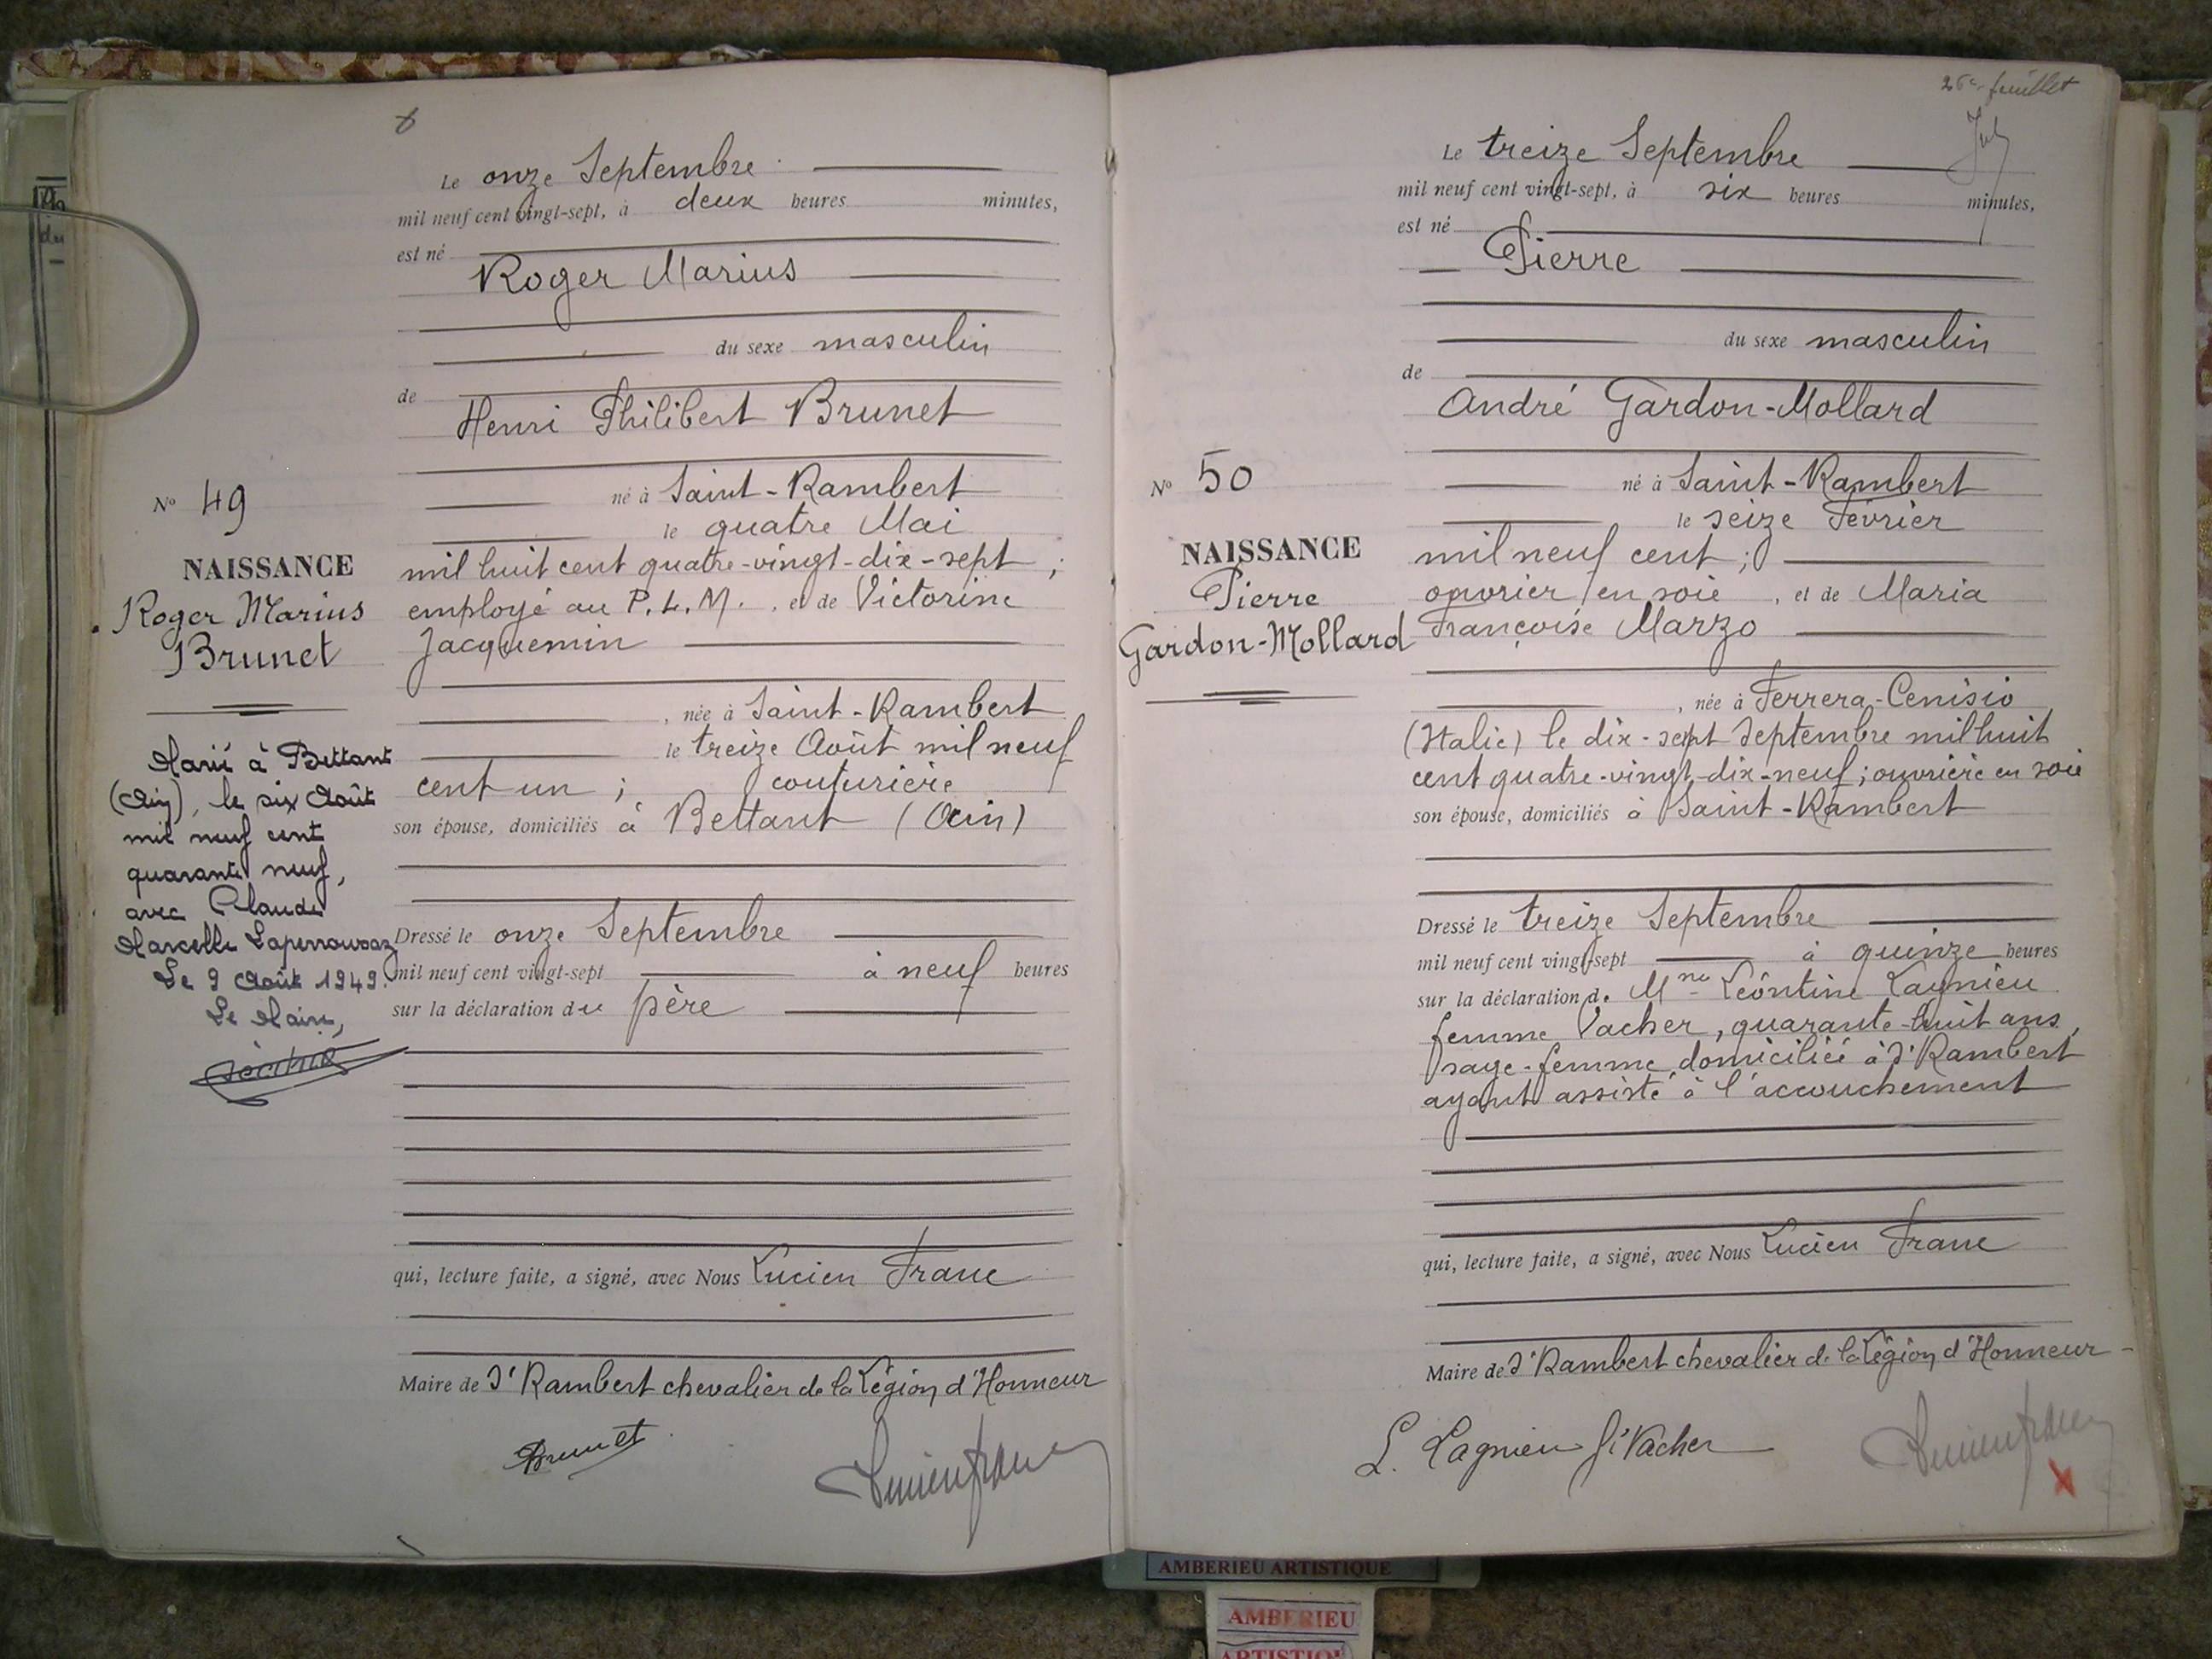 Le onze Septembre
mil neuf cent vingt-sept, à deux heures minutes,
est né
Roger Marius
du sexe masculin
de
Henri Philibert Brunet
né à Saint-Rambert
le quatre Mai
mil huit cent quatre-vingt-dix-sept ;
employé au P. L. M. , et de Victorine
Jacquemin
, née à Saint-Rambert
le treize Août mil neuf
cent un ; couturière
son épouse, domiciliés à Bettant (Ain)
Dressé le onze Septembre
mil neuf cent vingt-sept à neuf heures
sur la déclaration du père
qui, lecture faite, a signé, avec Nous Lucien Franc
Maire de St Rambert chevalier de la Légion d'Honneur
Brunet
Lucien Franc
No 49
NAISSANCE
Roger Marius
Brunet
Marié à Bettant
(Ain), le six Août
mil neuf cent
quarante neuf,
avec Claude
Marcelle Laperrousaz
Le 9 Août 1949.
Le Maire,
26e feuillet
Le treize Septembre
mil neuf cent vingt-sept, à six heures minutes,
est né
Pierre
du sexe masculin
de
André Gardon-Mollard
né à Saint-Rambert
le seize Février
mil neuf cent ;
ouvrier en soie , et de Maria
Françoise Marzo
, née à Ferrera-Cenisio
(Italie) le dix-sept Septembre mil huit
cent quatre-vingt-dix-neuf ; ouvrière en soie
son épouse, domiciliés à Saint-Rambert
Dressé le treize Septembre
mil neuf cent vingt-sept à quinze heures
sur la déclaration de Mme Léontine Lagnieu
femme Vacher, quarante-huit ans,
sage-femme domiciliée à St Rambert
ayant assisté à l'accouchement
qui, lecture faite, a signé, avec Nous Lucien Franc
Maire de St Rambert chevalier de la Légion d'Honneur
L. Lagnieu fe Vacher
Lucien Franc
No 50
NAISSANCE
Pierre
Gardon-Mollard
AMBERIEU ARTISTIQUE
AMBERIEU
ARTISTIQU